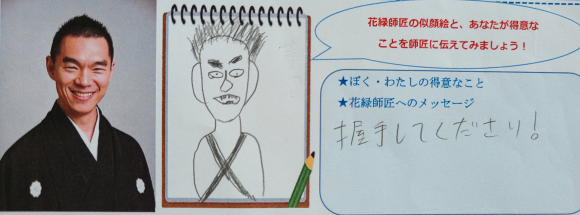 花緑師匠の似顔絵と、あなたが得意な
ことを師匠に伝えてみましょう！
★ぼく・わたしの得意なこと
★花緑師匠へのメッセージ
握手してくださり！